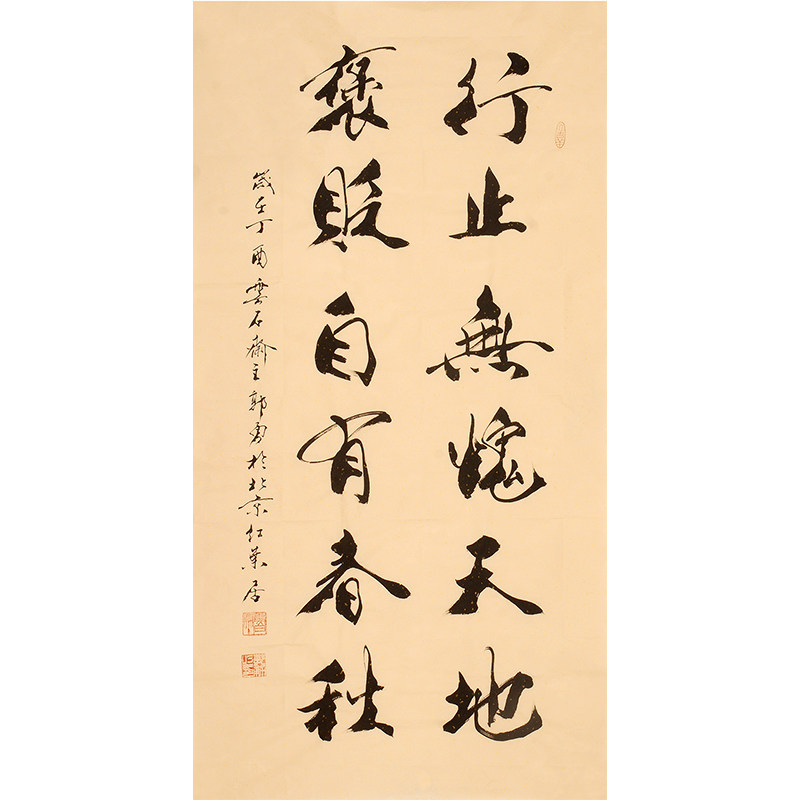 行止無愧天地
褒貶自有春秋
歲在丁酉雲石齋主郭勇於北京紅葉居